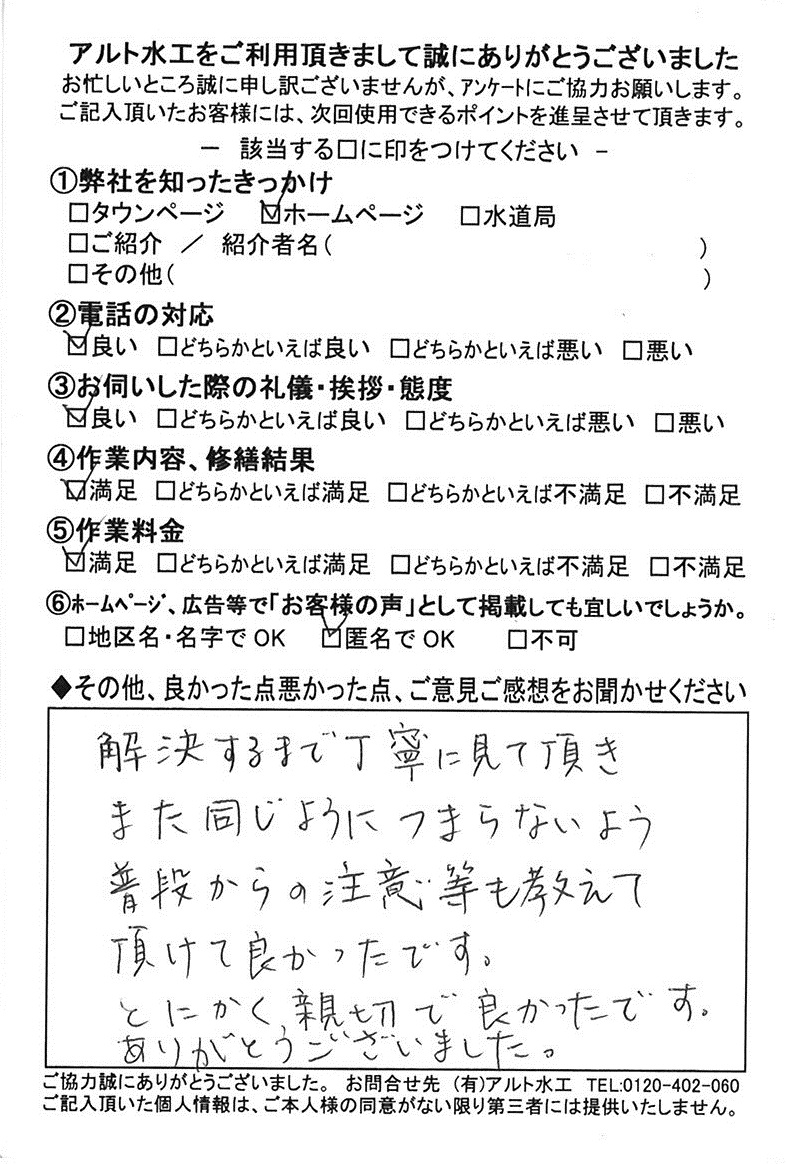 アルト水工をご利用頂きまして誠にありがとうございました
お忙しいところ誠に申し訳ございませんが、アンケートにご協力お願いします。
ご記入頂いたお客様には、次回使用できるポイントを進呈させて頂きます。
－ 該当する□に印をつけてください －
①弊社を知ったきっかけ
□タウンページ ☑ホームページ □水道局
□ご紹介 ／ 紹介者名( )
□その他( )
②電話の対応
☑良い □どちらかといえば良い □どちらかといえば悪い □悪い
③お伺いした際の礼儀・挨拶・態度
☑良い □どちらかといえば良い □どちらかといえば悪い □悪い
④作業内容、修繕結果
☑満足 □どちらかといえば満足 □どちらかといえば不満足 □不満足
⑤作業料金
☑満足 □どちらかといえば満足 □どちらかといえば不満足 □不満足
⑥ホームページ、広告等で「お客様の声」として掲載しても宜しいでしょうか。
□地区名・名字でOK ☑匿名でOK □不可
◆その他、良かった点悪かった点、ご意見ご感想をお聞かせください
解決するまで丁寧に見て頂き
また同じようにつまらないよう
普段からの注意等も教えて
頂けて良かったです。
とにかく親切で良かったです。
ありがとうございました。
ご協力誠にありがとうございました。 お問合せ先 (有)アルト水工 TEL:0120-402-060
ご記入頂いた個人情報は、ご本人様の同意がない限り第三者には提供いたしません。